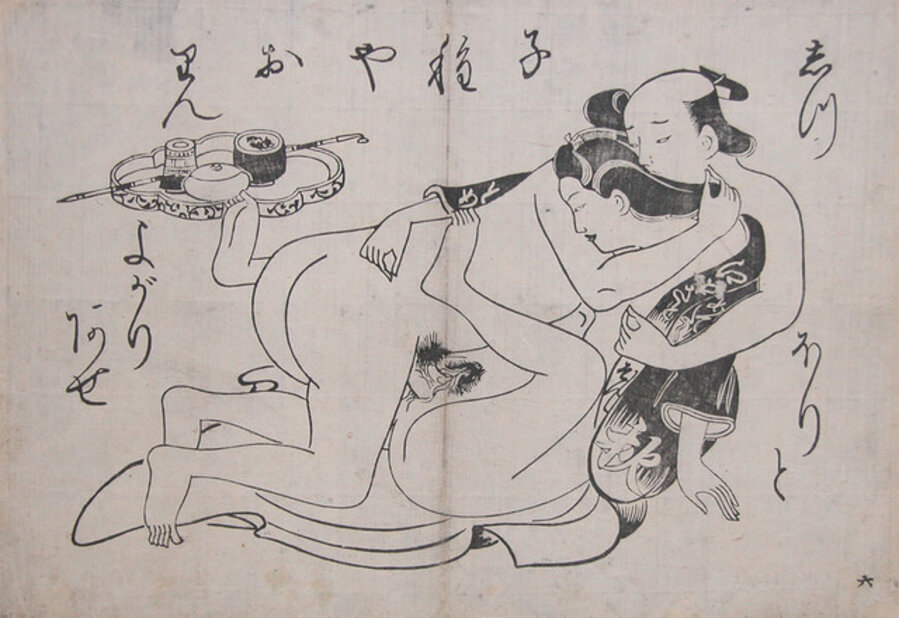 志つ
ほりと
子種やお
里ん
よがり
あせ
六